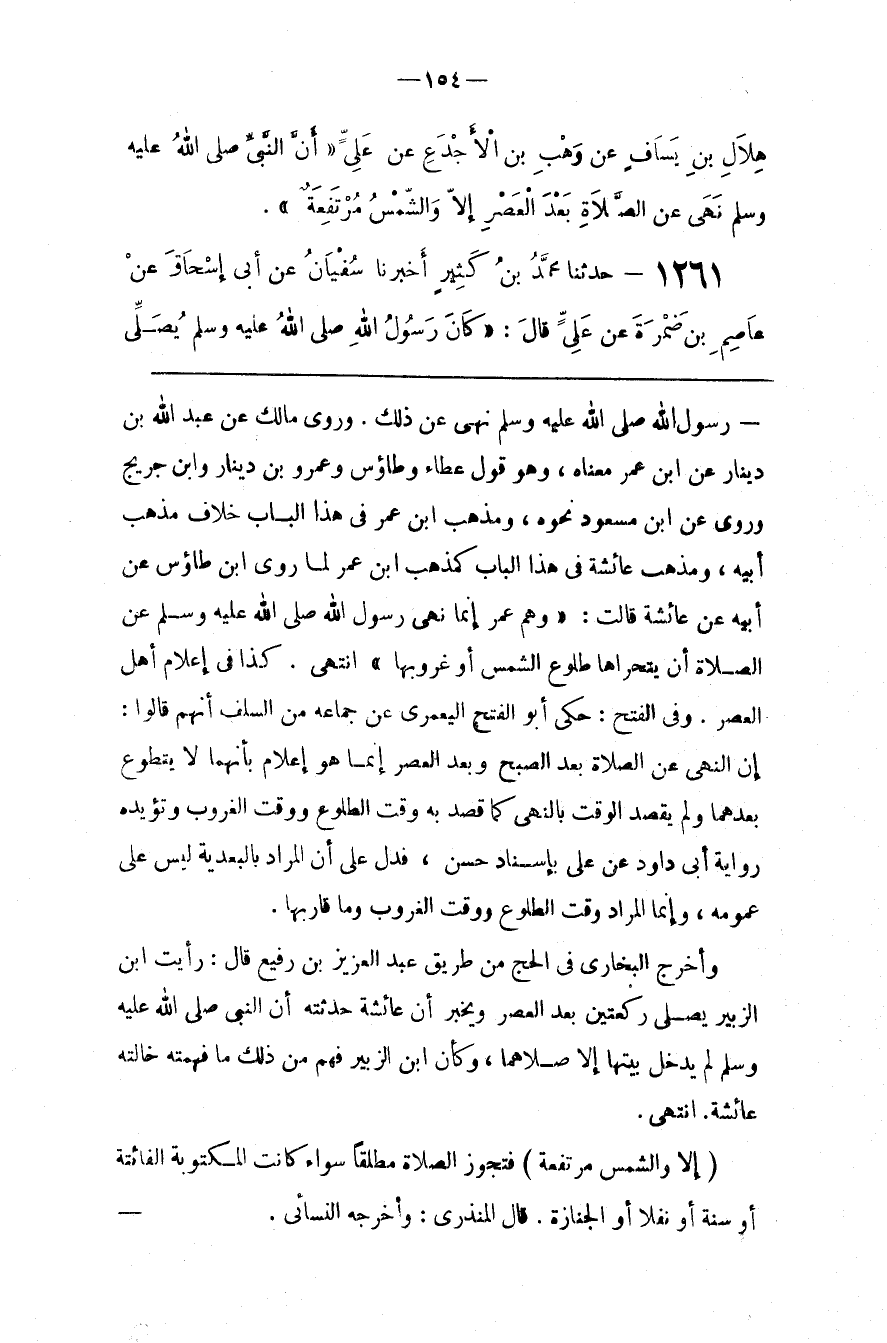 —١٥٤—
هِلاَلِ بنِ يَسَافٍ عن وَهْبِ بن الْأَجْدَعِ عن عَلِيٍّ « أَنَّ النَّبيَّ صلى اللهُ عليه
وسلم نَهَى عن الصَّلاَةِ بَعْدَ الْعَصْرِ إلاّ وَالشَّمْسُ مُرْتَفِعَةٌ » .
١٢٦١ — حدثنا محمَّدُ بنُ كَثِيرٍ أخبرنا سُفْيَانُ عن أبى إسْحَاقَ عنْ
عاَصِمِ بنِ ضَمْرَةَ عن عَلِيٍّ قالَ : « كَانَ رَسُولُ اللهِ صلى اللهُ عليه وسلم يُصَـلِّى
— رسول الله صلى الله عليه وسلم نهى عن ذلك . وروى مالك عن عبد الله بن
دينار عن ابن عمر معناه ، وهو قول عطاء وطاؤس وعمرو بن دينار وابن جريج
وروى عن ابن مسعود نحوه ، ومذهب ابن عمر فى هذا البـاب خلاف مذهب
أبيه ، ومذهب عائشة فى هذا الباب كمذهب ابن عمر لمـا روى ابن طاؤس عن
أبيه عن عائشة قالت : « وهم عمر إنما نهى رسول الله صلى الله عليه وسـلم عن
الصـلاة أن يتحراها طلوع الشمس أو غروبها » انتهى . كذا فى إعلام أهل
العصر . وفى الفتح : حكى أبو الفتح اليعمرى عن جماعه من السلف أنهم قالوا :
إن النهى عن الصلاة بعد الصبح وبعد العصر إنمـا هو إعلام بأنهما لا يتطوع
بعدهما ولم يقصد الوقت بالنهى كما قصد به وقت الطلوع ووقت الغروب وتؤيده
رواية أبى داود عن على بإسـناد حسن ، فدل على أن المراد بالبعدية ليس على
عمومه ، وإنما المراد وقت الطلوع ووقت الغروب وما قاربها .
وأخرج البخارى فى الحج من طريق عبد العزيز بن رفيع قال : رأيت ابن
الزبير يصـلى ركعتين بعد العصر ويخبر أن عائشة حدثته أن النبى صلى الله عليه
وسلم لم يدخل بيتها إلا صـلاهما ، وكأن ابن الزبير فهم من ذلك ما فهمته خالته
عائشة . انتهى .
( إلا والشمس مرتفعة ) فتجوز الصلاة مطلقاً سواء كانت المـكتوبة الفائتة
أو سنة أو نفلا أو الجنازة . قال المنذرى : وأخرجه النسائى . —